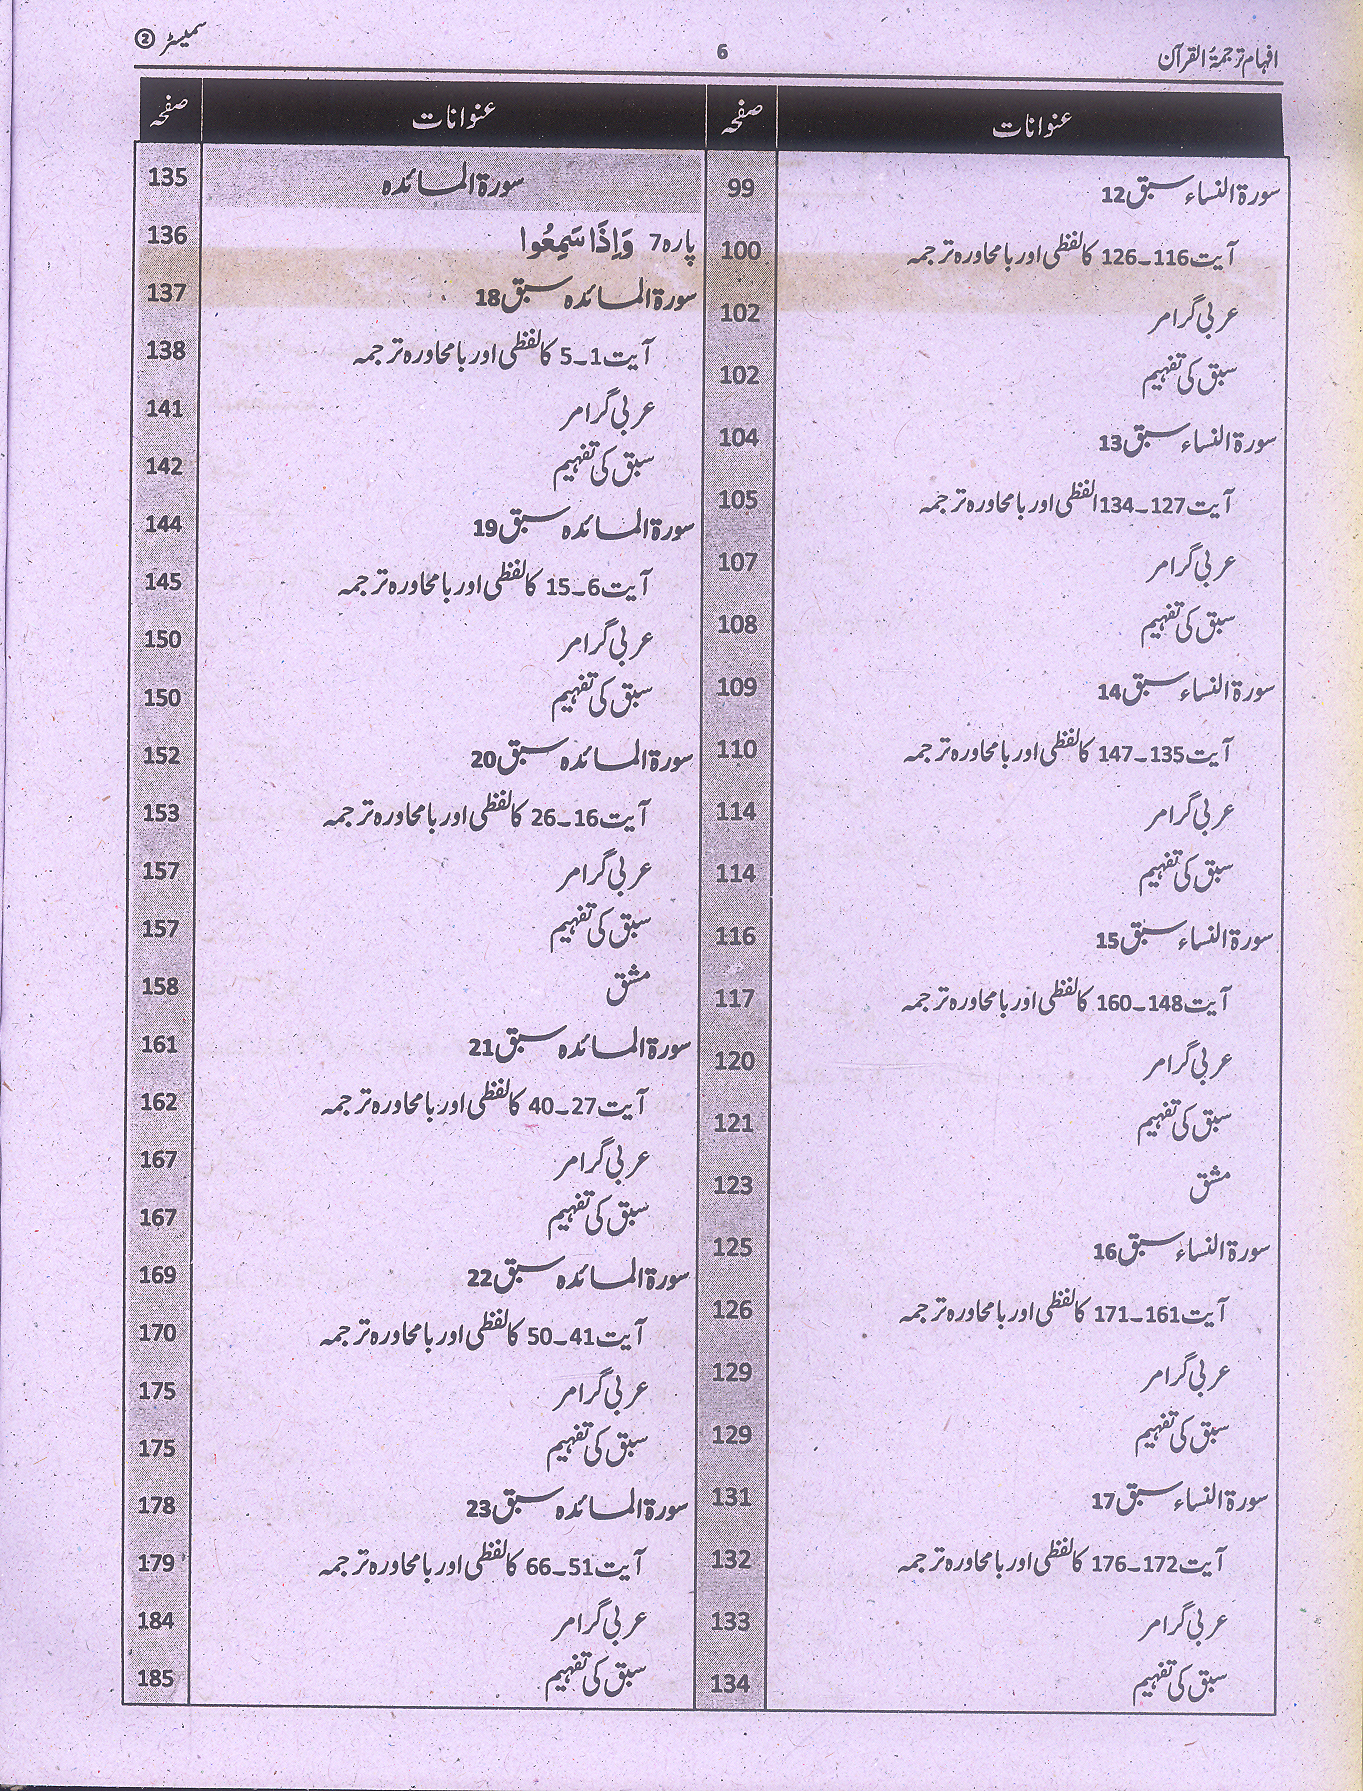 افہام ترجمۃُ القرآن 6 سمیسٹر ②
عنوانات صفحہ
سورۃ النساء سبق 12 99
آیت 116۔126 کا لفظی اور بامحاورہ ترجمہ 100
عربی گرامر 102
سبق کی تفہیم 102
سورۃ النساء سبق 13 104
آیت 127۔134 الفظی اور بامحاورہ ترجمہ 105
عربی گرامر 107
سبق کی تفہیم 108
سورۃ النساء سبق 14 109
آیت 135۔147 کا لفظی اور بامحاورہ ترجمہ 110
عربی گرامر 114
سبق کی تفہیم 114
سورۃ النساء سبق 15 116
آیت 148۔160 کا لفظی اور بامحاورہ ترجمہ 117
عربی گرامر 120
سبق کی تفہیم 121
مشق 123
سورۃ النساء سبق 16 125
آیت 161۔171 کا لفظی اور بامحاورہ ترجمہ 126
عربی گرامر 129
سبق کی تفہیم 129
سورۃ النساء سبق 17 131
آیت 172۔176 کا لفظی اور بامحاورہ ترجمہ 132
عربی گرامر 133
سبق کی تفہیم 134
عنوانات صفحہ
سورۃ المائدہ 135
پارہ 7 وَإِذَا سَمِعُوا 136
سورۃ المائدہ سبق 18 137
آیت 1۔5 کا لفظی اور بامحاورہ ترجمہ 138
عربی گرامر 141
سبق کی تفہیم 142
سورۃ المائدہ سبق 19 144
آیت 6۔15 کا لفظی اور بامحاورہ ترجمہ 145
عربی گرامر 150
سبق کی تفہیم 150
سورۃ المائدہ سبق 20 152
آیت 16۔26 کا لفظی اور بامحاورہ ترجمہ 153
عربی گرامر 157
سبق کی تفہیم 157
مشق 158
سورۃ المائدہ سبق 21 161
آیت 27۔40 کا لفظی اور بامحاورہ ترجمہ 162
عربی گرامر 167
سبق کی تفہیم 167
سورۃ المائدہ سبق 22 169
آیت 41۔50 کا لفظی اور بامحاورہ ترجمہ 170
عربی گرامر 175
سبق کی تفہیم 175
سورۃ المائدہ سبق 23 178
آیت 51۔66 کا لفظی اور بامحاورہ ترجمہ 179
عربی گرامر 184
سبق کی تفہیم 185